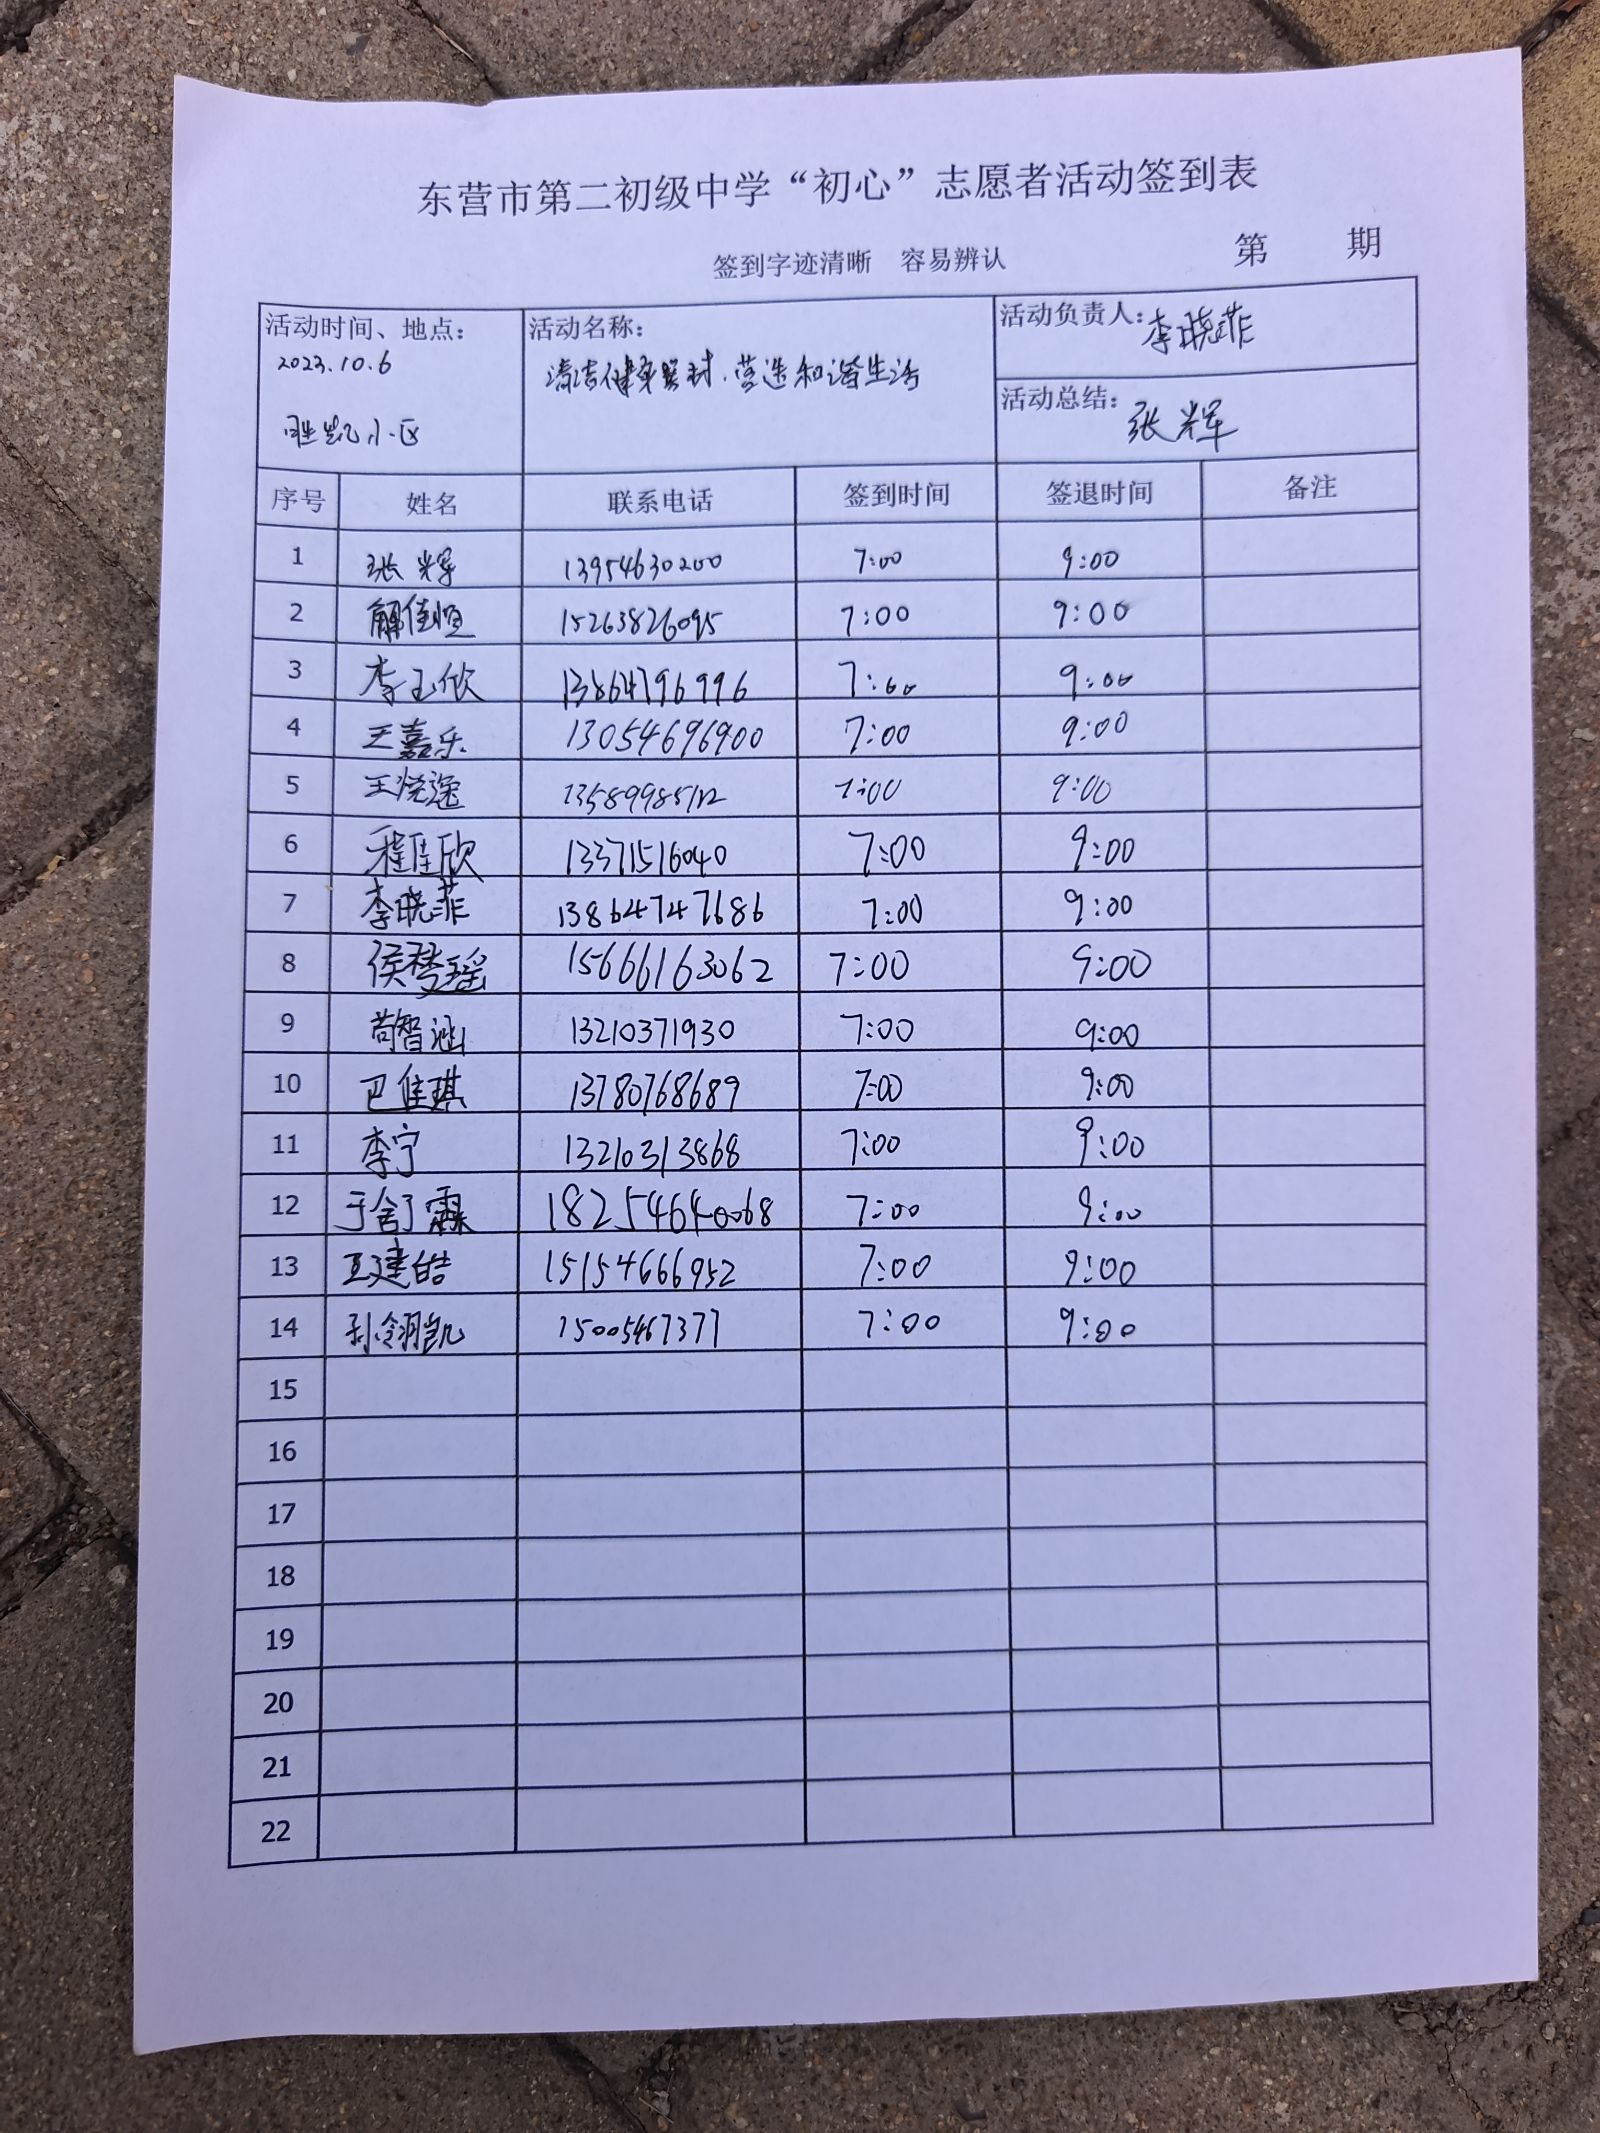 东营市第二初级中学“初心”志愿者活动签到表
签到字迹清晰 容易辨认 第 期
活动时间、地点： 活动名称： 活动负责人：李晓菲
2023.10.6 清洁健身器材，营造和谐生活
胜凯小区 活动总结：张辉
序号 姓名 联系电话 签到时间 签退时间 备注
1 张辉 13954630200 7:00 9:00
2 解佳恒 15263826095 7:00 9:00
3 李玉欣 13864796996 7:00 9:00
4 王嘉乐 13054696900 7:00 9:00
5 王烧逸 7:00 9:00
6 程佳欣 13371516040 7:00 9:00
7 李晓菲 13864747686 7:00 9:00
8 侯梦瑶 15666163062 7:00 9:00
9 苟智涵 13210371930 7:00 9:00
10 巴佳琪 13780768689 7:00 9:00
11 李宁 13210313868 7:00 9:00
12 于舒霖 18254640068 7:00 9:00
13 王建皓 15154666952 7:00 9:00
14 翎凯 15005467377 7:00 9:00
15
16
17
18
19
20
21
22